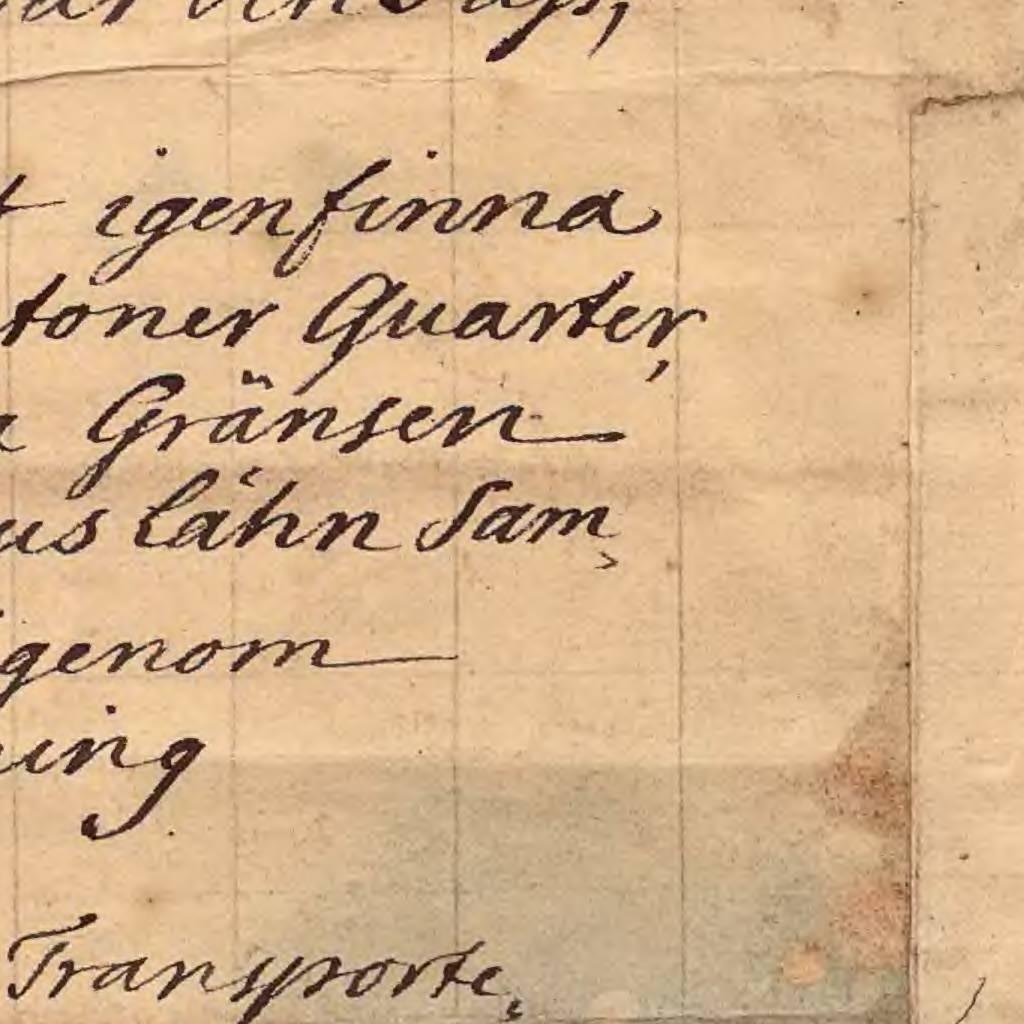 igenfinna
toner Quarter,
Gränsen
us lähn Sam,
genom
ning
Transporte,